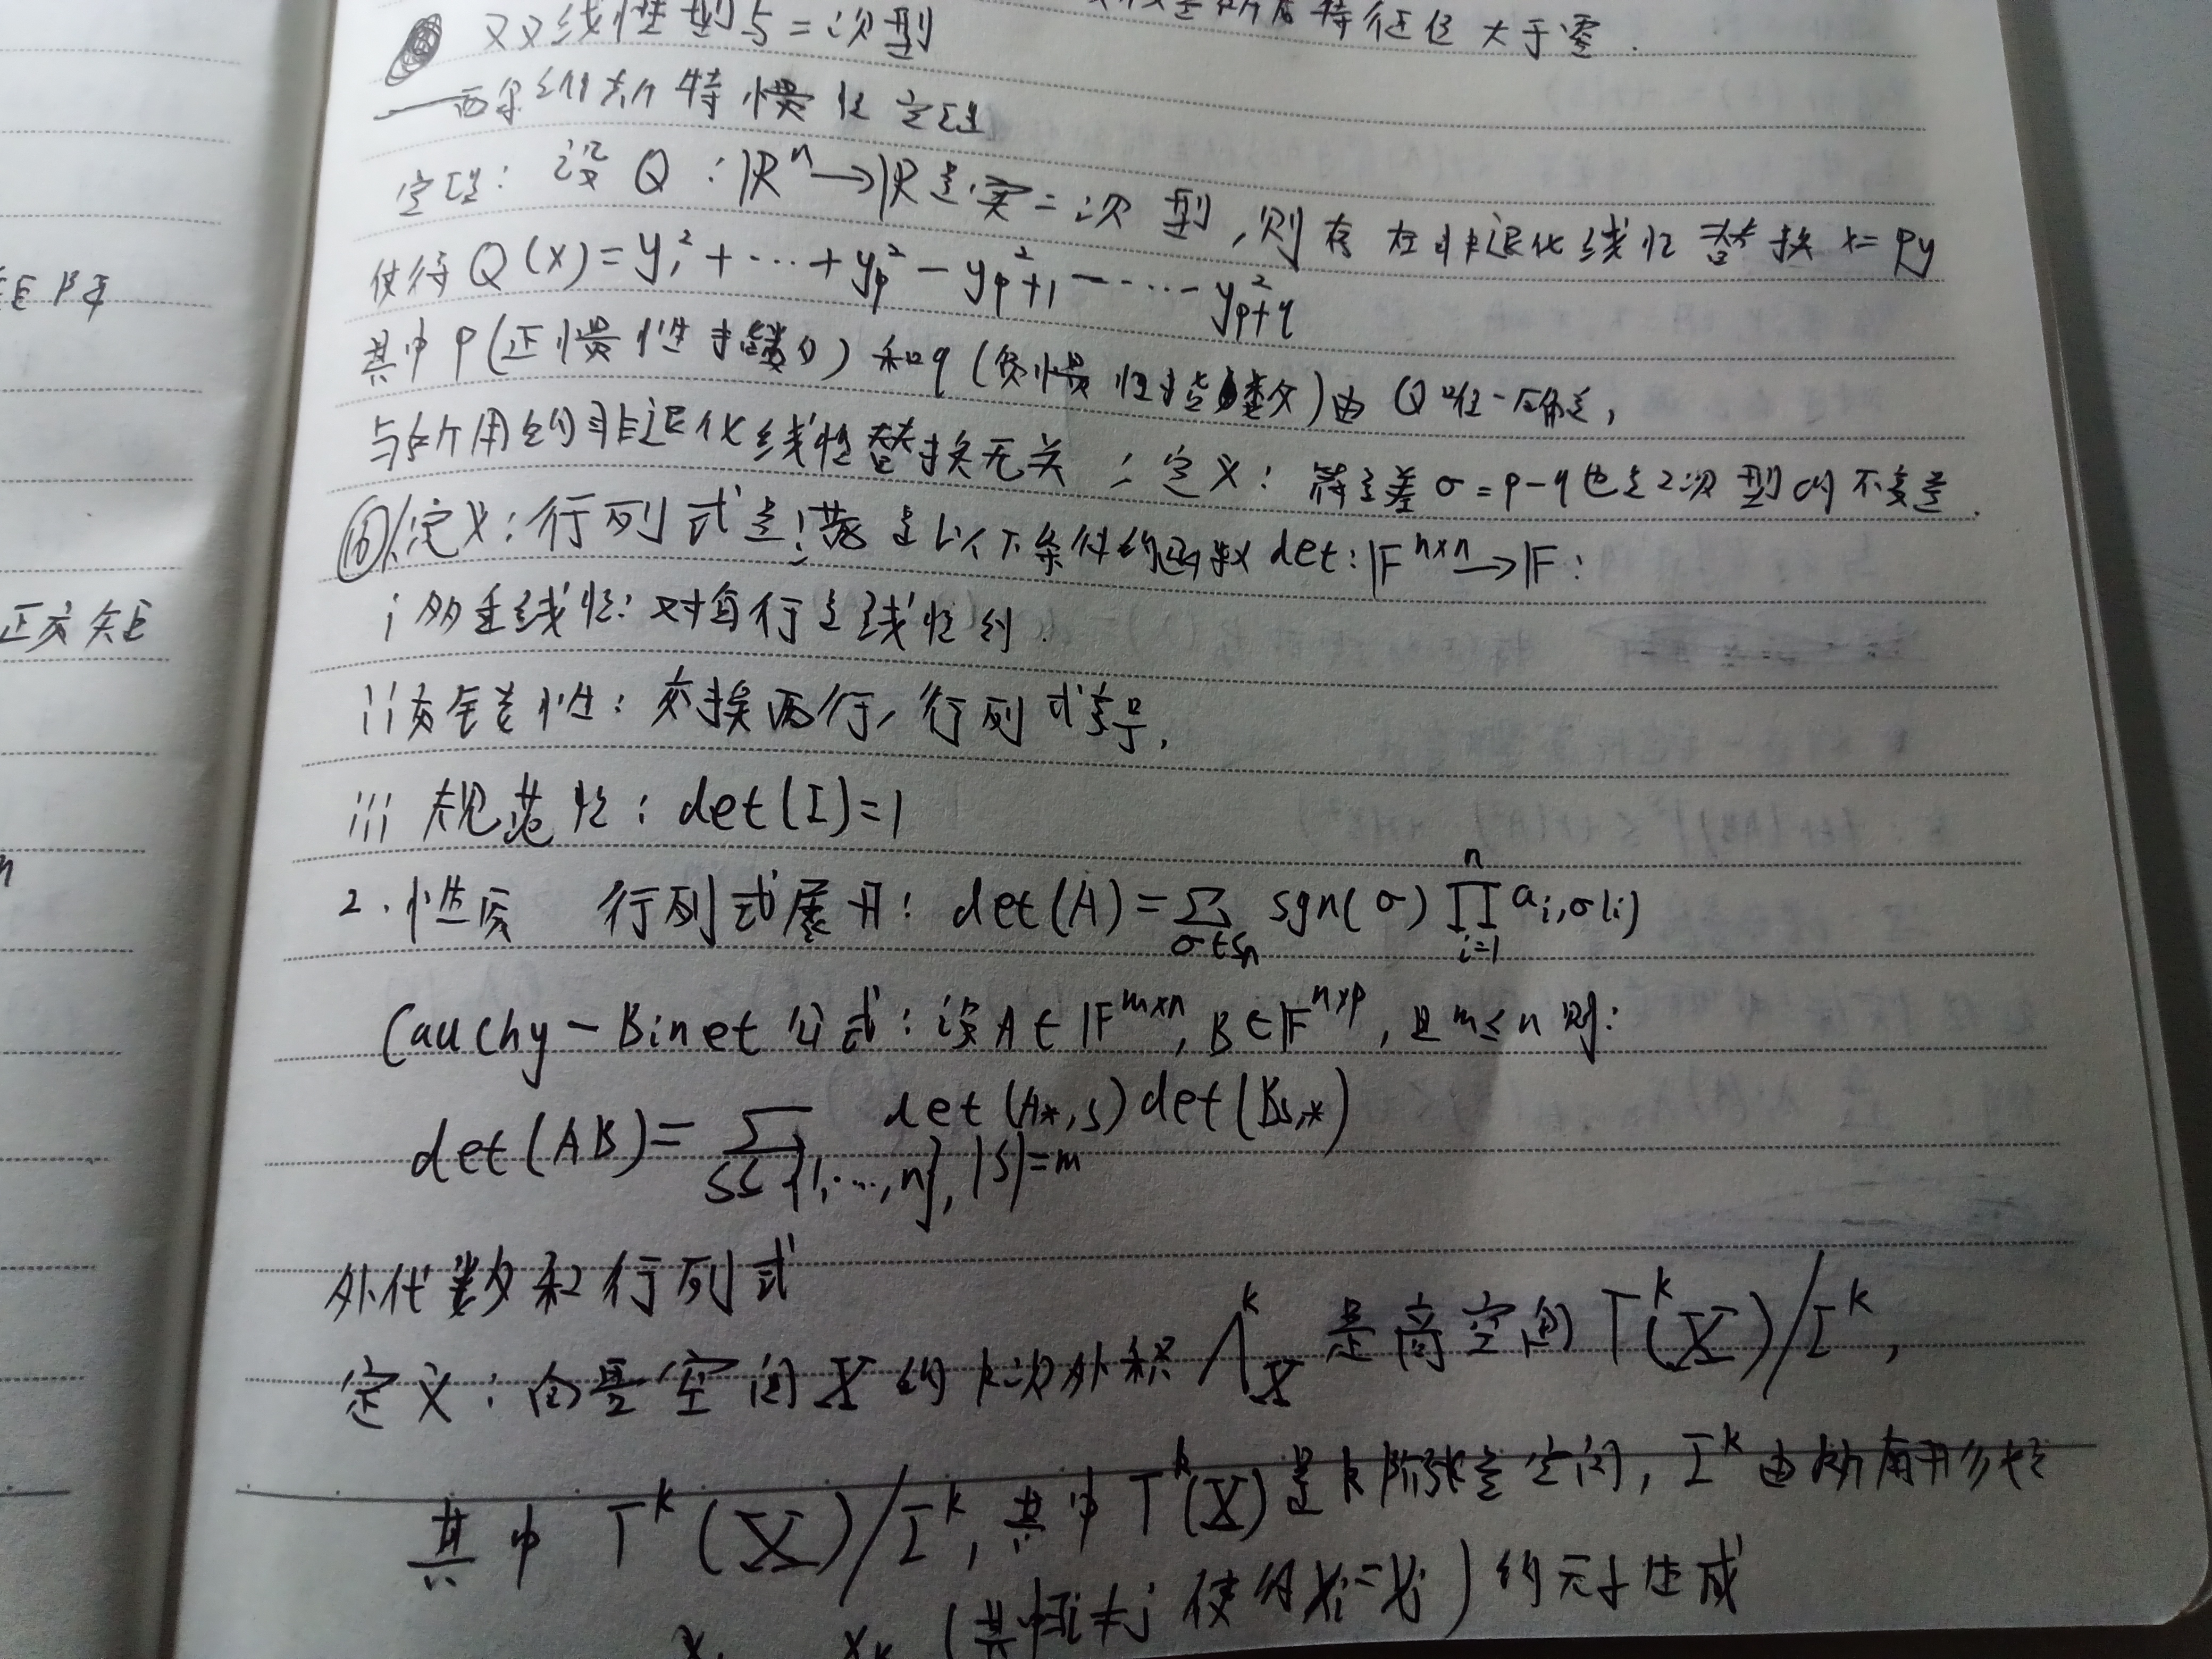 双线性型与二次型
特征值大于零.
西尔维斯特惯性定理
定理：设 Q：ℝⁿ→ℝ是实二次型，则存在非退化线性替换 x=Py
使得 Q(x)=y₁²+⋯+yₚ²−yₚ₊₁²−⋯−yₚ₊q²
其中 p(正惯性指数) 和 q (负惯性指数)由 Q 唯一确定，
与所用的非退化线性替换无关 ∴ 定义：符号差 σ=p−q 也是二次型的不变量.
⑯ 1.定义：行列式是满足以下条件的函数 det：𝔽ⁿˣⁿ→𝔽：
i 多重线性：对每行是线性的.
ii 交错性：交换两行，行列式变号.
iii 规范性：det(I)=1
2. 性质 行列式展开：det(A)=∑_{σ∈Sₙ} sgn(σ) ∏_{i=1}^{n} a_{i,σ(i)}
Cauchy-Binet 公式：设 A∈𝔽^{m×n}, B∈𝔽^{n×p}, 且 m≤n 则：
det(AB)=∑_{S⊆{1,⋯,n},|S|=m} det(A_{*,S})det(B_{S,*})
外代数和行列式
定义：向量空间 X 的 k次外积 Λ^k_X 是商空间 T^k(X)/I^k,
其中 T^k(X)/I^k, 其中 T^k(X) 是 k 阶张量空间, I^k 由所有形如
x₁ xₖ (其中i≠j 使得 xᵢ=xⱼ) 的元素生成
正交矩
矩阵
n